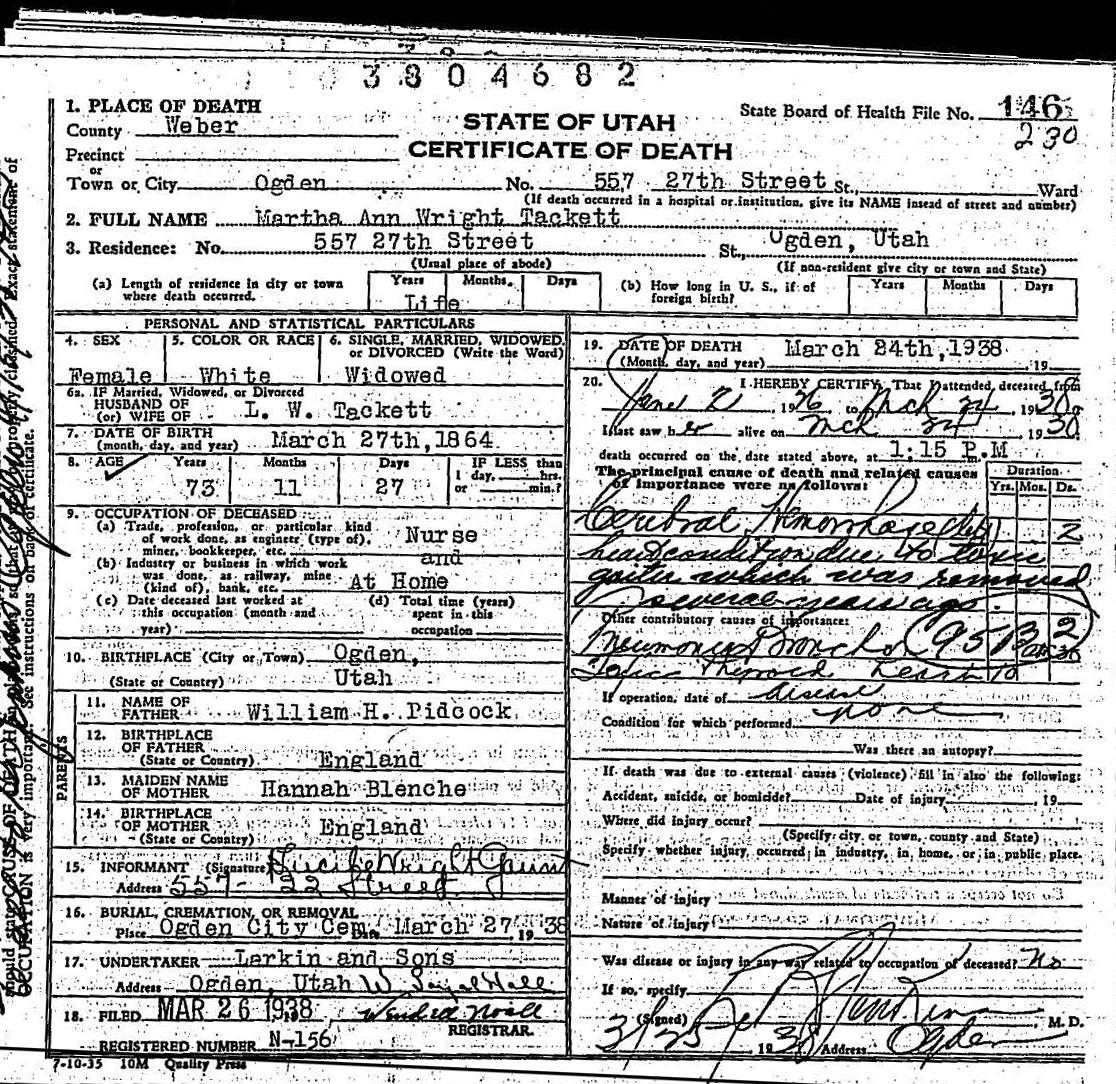 3804682
1. PLACE OF DEATH
County Weber
STATE OF UTAH
CERTIFICATE OF DEATH
State Board of Health File No. 146
230
Precinct
or
Town or City Ogden No. 557 27th Street St., Ward
(If death occurred in a hospital or institution, give its NAME insead of street and number)
2. FULL NAME Martha Ann Wright Tackett
3. Residence: No. 557 27th Street St., Ogden, Utah
(Usual place of abode) (If non-resident give city or town and State)
(a) Length of residence in city or town where death occurred. Years Months. Days
Life
(b) How long in U. S., if of foreign birth? Years Months Days
PERSONAL AND STATISTICAL PARTICULARS
4. SEX 5. COLOR OR RACE 6. SINGLE, MARRIED, WIDOWED, or DIVORCED (Write the Word)
Female White Widowed
6a. IF Married, Widowed, or Divorced
HUSBAND OF
(or) WIFE OF L. W. Tackett
7. DATE OF BIRTH
(month, day, and year) March 27th,1864
8. AGE Years Months Days IF LESS than
1 day, hrs.
or min.?
73 11 27
9. OCCUPATION OF DECEASED
(a) Trade, profession, or particular kind
of work done, as engineer (type of),
miner, bookkeeper, etc. Nurse
and
(b) Industry or business in which work
was done, as railway, mine
(kind of), bank, etc. At Home
(c) Date deceased last worked at
this occupation (month and
year)
(d) Total time (years)
spent in this
occupation
10. BIRTHPLACE (City or Town) Ogden,
(State or Country) Utah
PARENTS
11. NAME OF
FATHER William H. Pidcock
12. BIRTHPLACE
OF FATHER
(State or Country) England
13. MAIDEN NAME
OF MOTHER Hannah Blenche
14. BIRTHPLACE
OF MOTHER
(State or Country) England
15. INFORMANT (Signature) Wright Gaunt
Address 557- 22 Street
16. BURIAL, CREMATION, OR REMOVAL
Place Ogden City Cem. Date March 27, 1938
17. UNDERTAKER Larkin and Sons
Address Ogden, Utah
18. FILED MAR 26 1938
REGISTRAR.
REGISTERED NUMBER N-156
7-10-35 10M Quality Press
19. DATE OF DEATH March 24th,1938 19
(Month, day, and year)
20. I HEREBY CERTIFY, That I attended deceased from
June 2 1926 to Mch 24 1938
I last saw her alive on Mch 24 1938
death occurred on the date stated above, at 1:15 P.M
The principal cause of death and related causes
of importance were as follows:
Duration
Yrs. Mos. Ds.
Cerebral Hemorrhage 2
heart condition due to toxic
goiter which was removed
several years ago.
Other contributory causes of importance:
Pneumonia Broncho 95B 2
Toxic Thyroid heart
disease
If operation, date of none
Condition for which performed
Was there an autopsy?
If death was due to external causes (violence) fill in also the following:
Accident, suicide, or homicide? Date of injury 19
Where did injury occur?
(Specify city or town, county and State)
Specify whether injury occurred in industry, in home, or in public place.
Manner of injury
Nature of injury
Was disease or injury in any way related to occupation of deceased? No
If so, specify
(Signed) M. D.
3/25 1938 Address Ogden
OCCUPATION is very important. See instructions on back of certificate.